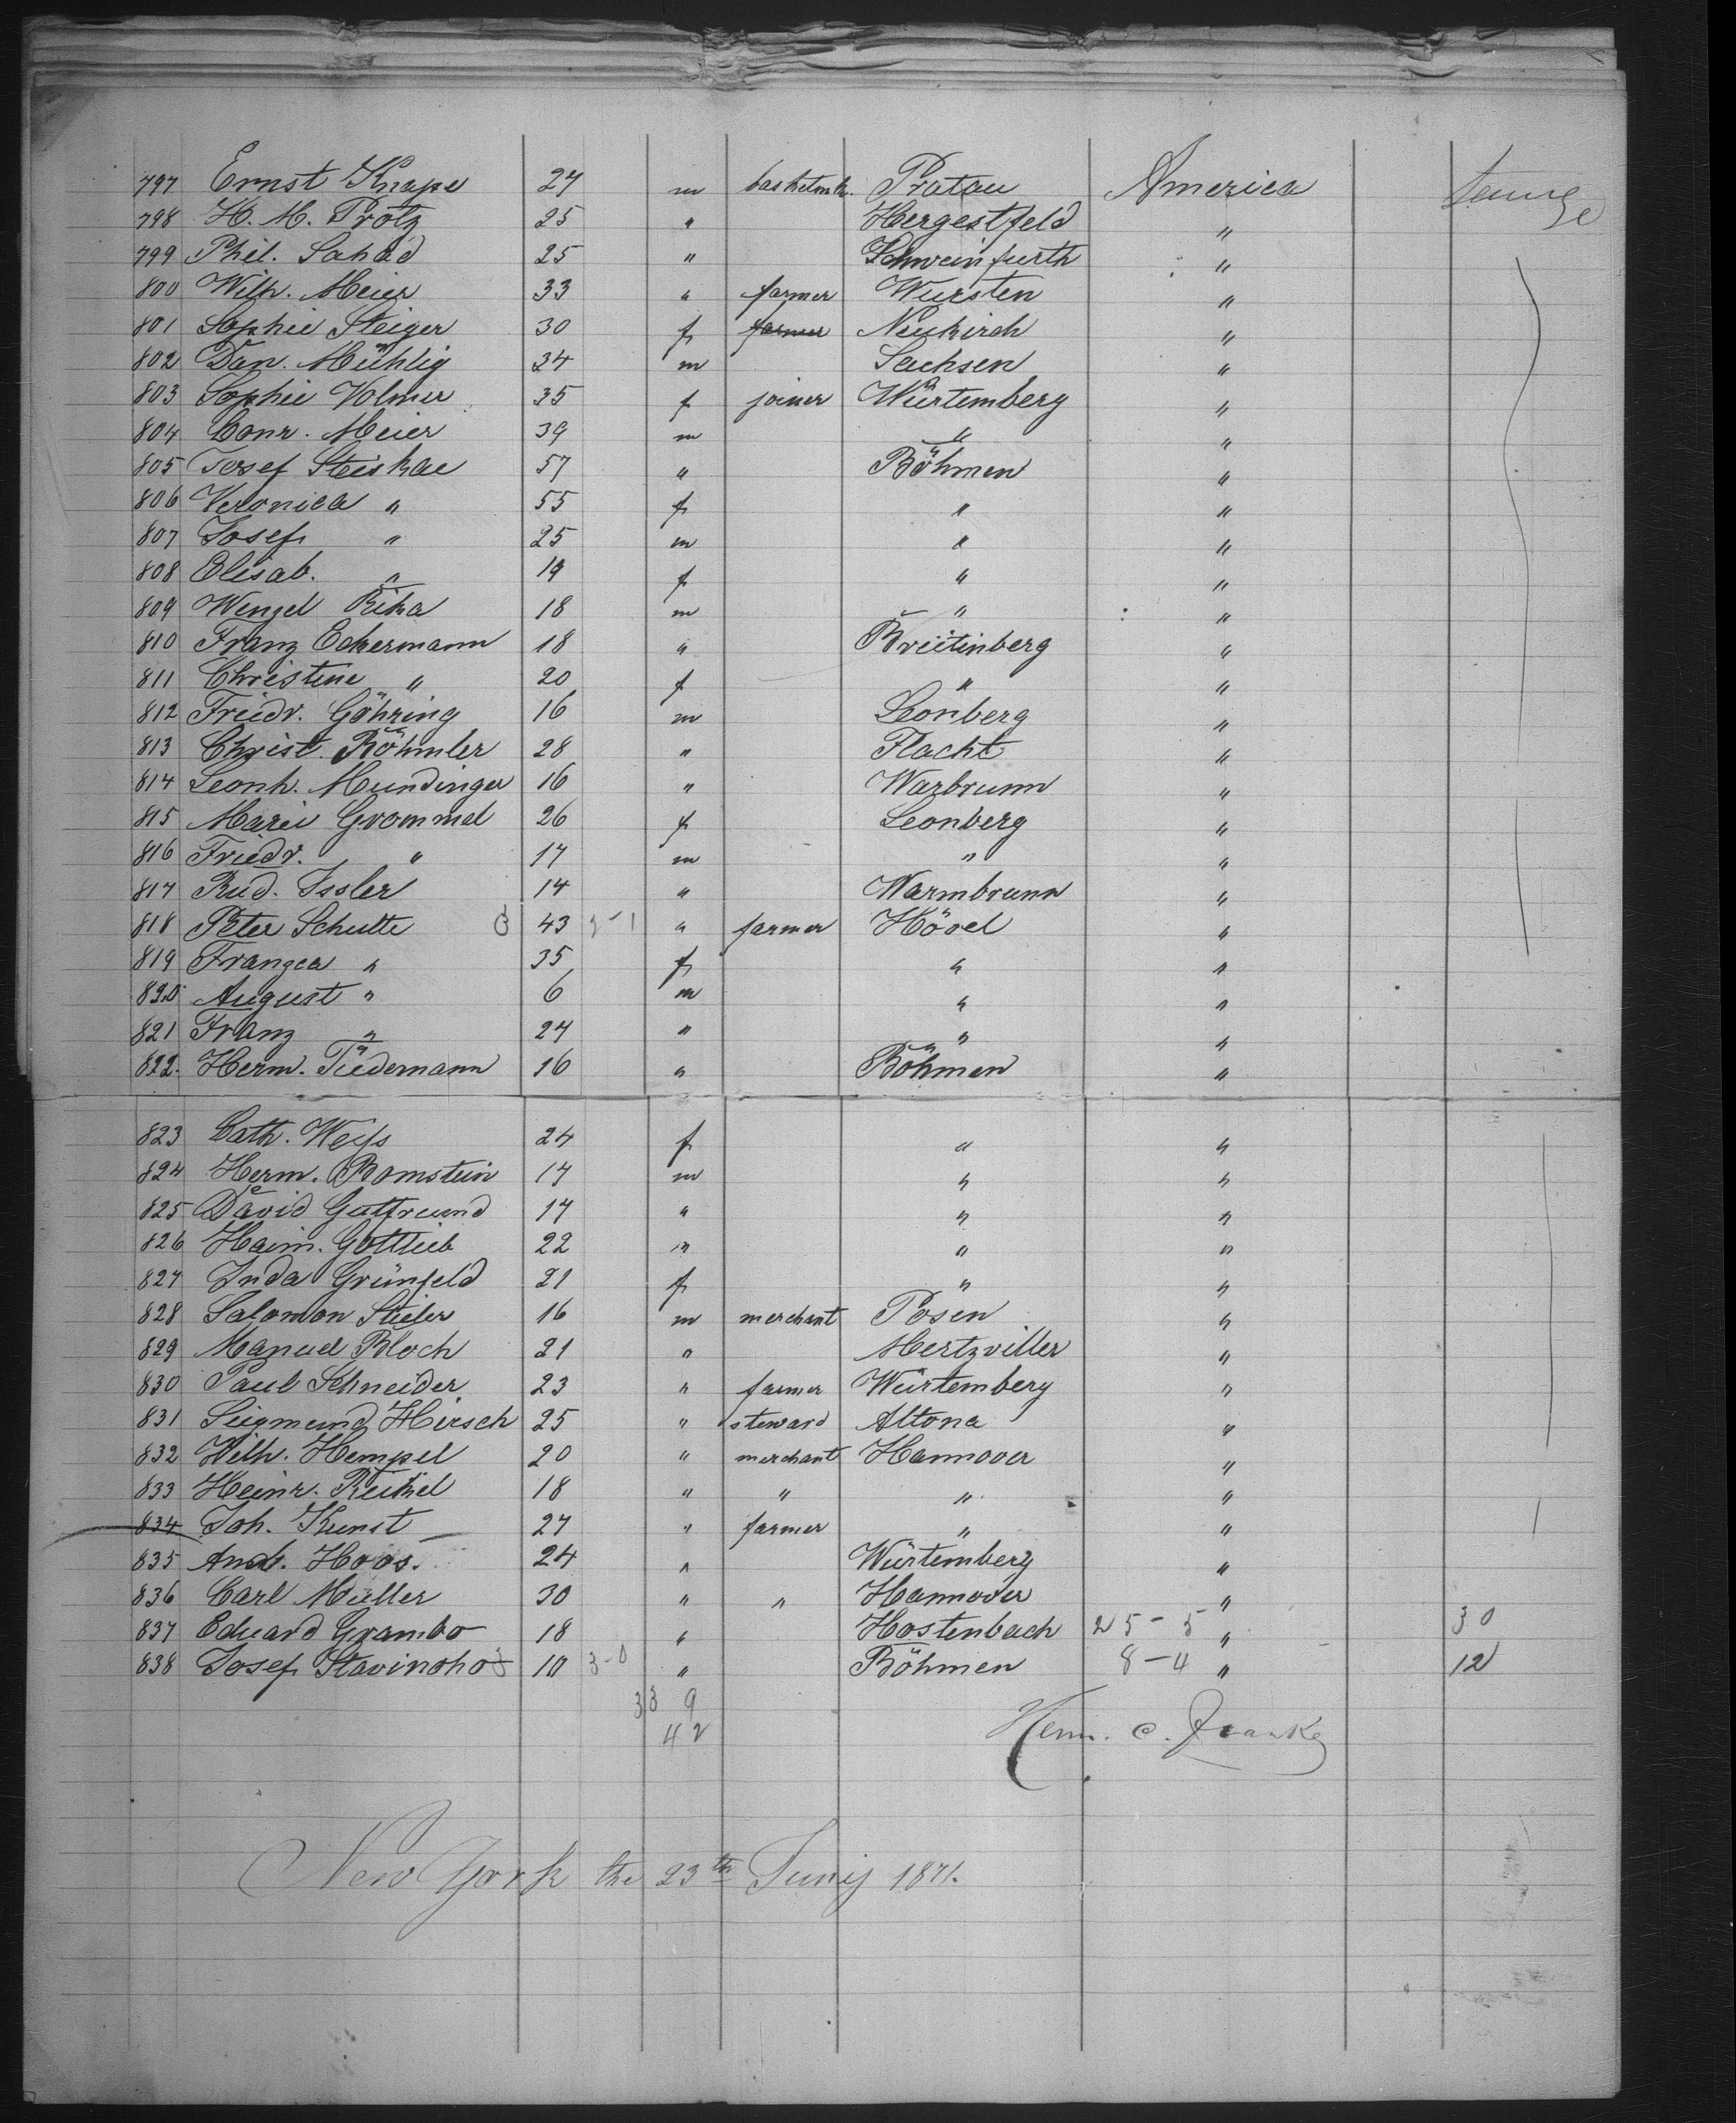 797 Ernst Knape 27 m basketmk. Pratau America
798 H. M. Protz 25 " Hergestfeld "
799 Phil. Sahad 25 " Schweinfurth "
800 Wilh. Meier 33 " farmer Wursten "
801 Sophie Steiger 30 f farmer Neukirch "
802 Dan. Mühlig 34 m Sachsen "
803 Sophie Volmer 35 f joiner Würtemberg "
804 Conr. Meier 39 m " "
805 Josef Steiskae 57 " Böhmen "
806 Veronica " 55 f " "
807 Josef " 25 m " "
808 Elisab. " 19 f " "
809 Wenzel Rika 18 m " "
810 Franz Eckermann 18 " Breitinberg "
811 Christine " 20 f " "
812 Friedr. Göhring 16 m Leonberg "
813 Christ. Röhmler 28 " Flacht "
814 Leonh. Mundinger 16 " Warbrunn "
815 Marie Grommel 26 f Leonberg "
816 Friedr. " 17 m " "
817 Rud. Issler 14 " Warmbrunn "
818 Peter Schulte 43 " farmer Hövel "
819 Franzca " 35 f " "
820 August " 6 m " "
821 Franz " 24 " " "
822. Herm. Tiedemann 16 " Böhmen "
823 Cath. Weiß 24 f " "
824 Herm. Bomstein 17 m " "
825 David Gutfreund 17 " " "
826 Haim. Gottlieb 22 m " "
827 Inda Grünfeld 21 f " "
828 Salomon Stieler 16 m merchant Posen "
829 Manuel Bloch 21 " Mertzviller "
830 Paul Schneider 23 " farmer Würtemberg "
831 Siegmund Hirsch 25 " steward Altona "
832 Wilh. Hempel 20 " merchant Hannover "
833 Heinr. Reikel 18 " " " "
834 Joh. Kunst 27 " farmer " "
835 And. Hoos. 24 " Würtemberg "
836 Carl Müller 30 " " Hannover "
837 Eduard Grambo 18 " Hostenbach 25-5 " 30
838 Josef Stavinoho 10 3-0 " Böhmen 8-4 " 12
33 9
42
Herm. C. Franke
New York the 23th Junij 1871.